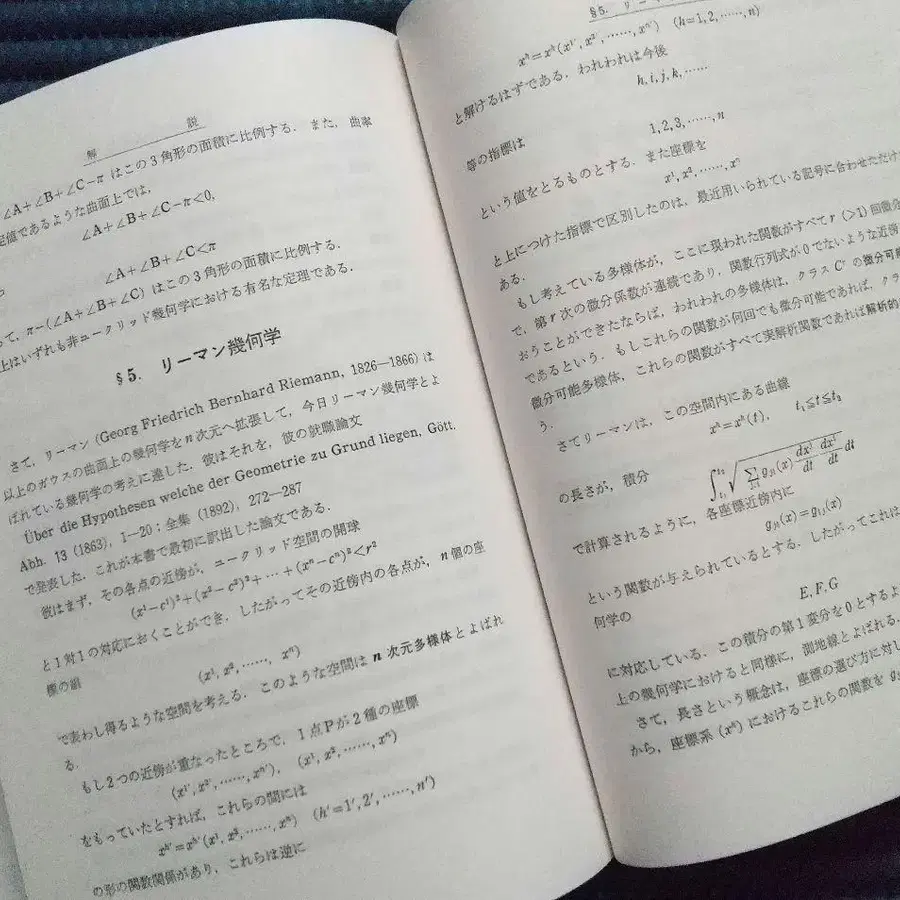 解 説
∠A+∠B+∠C−π はこの3角形の面積に比例する. また, 曲率
定値であるような曲面上では,
∠A+∠B+∠C−π<0,
∠A+∠B+∠C<π
って, π−(∠A+∠B+∠C) はこの3角形の面積に比例する.
上はいずれも非ユークリッド幾何学における有名な定理である.
§5. リーマン幾何学
さて, リーマン (Georg Friedrich Bernhard Riemann, 1826—1866) は
以上のガウスの曲面上の幾何学を n 次元へ拡張して, 今日リーマン幾何学とよ
ばれている幾何学の考えに達した. 彼はそれを, 彼の就職論文
Über die Hypothesen welche der Geometrie zu Grund liegen, Gött.
Abh. 13 (1863), 1—20; 全集 (1892), 272—287
で発表した. これが本書で最初に訳出した論文である.
彼はまず, その各点の近傍が, ユークリッド空間の開球
(x¹−c¹)²+(x²−c²)²+⋯+(xⁿ−cⁿ)²<r²
と1対1の対応におくことができ, したがってその近傍内の各点が, n 個の座
標の組
(x¹, x², ……, xⁿ)
で表わし得るような空間を考える. このような空間は n 次元多様体とよばれ
る.
もし2つの近傍が重なったところで, 1点Pが2種の座標
(x¹′, x²′, ……, xⁿ′), (x¹, x², ……, xⁿ)
をもっていたとすれば, これらの間には
xʰ′=xʰ′(x¹, x², ……, xⁿ) (h′=1′, 2′, ……, n′)
の形の関数関係があり, これらは逆に
§5. リーマ
xʰ=xʰ(x¹′, x²′, ……, xⁿ′) (h=1, 2, ……, n)
と解けるはずである. われわれは今後
h, i, j, k, ……
等の指標は
1, 2, 3, ……, n
という値をとるものとする. また座標を
x¹, x², ……, xⁿ
と上につけた指標で区別したのは, 最近用いられている記号に合わせただけ
ある.
もし考えている多様体が, ここに現われた関数がすべて r (>1) 回微分
で, 第 r 次の微分係数が連続であり, 関数行列式が0でないような近傍
おうことができたならば, われわれの多様体は, クラス Cʳ の微分可能
であるという. もしこれらの関数が何回でも微分可能であれば, クラ
微分可能多様体, これらの関数がすべて実解析関数であれば解析的
う.
さてリーマンは, この空間内にある曲線
xʰ=xʰ(t), t₁≦t≦t₂
の長さが, 積分
∫ₜ₁ᵗ² √(∑ⱼ,ᵢ gⱼᵢ(x) dxʲ/dt dxⁱ/dt) dt
で計算されるように, 各座標近傍内に
gⱼᵢ(x)=gᵢⱼ(x)
という関数が与えられているとする. したがってこれは
何学の
E, F, G
に対応している. この積分の第1変分を0とするよ
上の幾何学におけると同様に, 測地線とよばれる.
さて, 長さという概念は, 座標の選び方に対し
から, 座標系 (xʰ) におけるこれらの関数を g